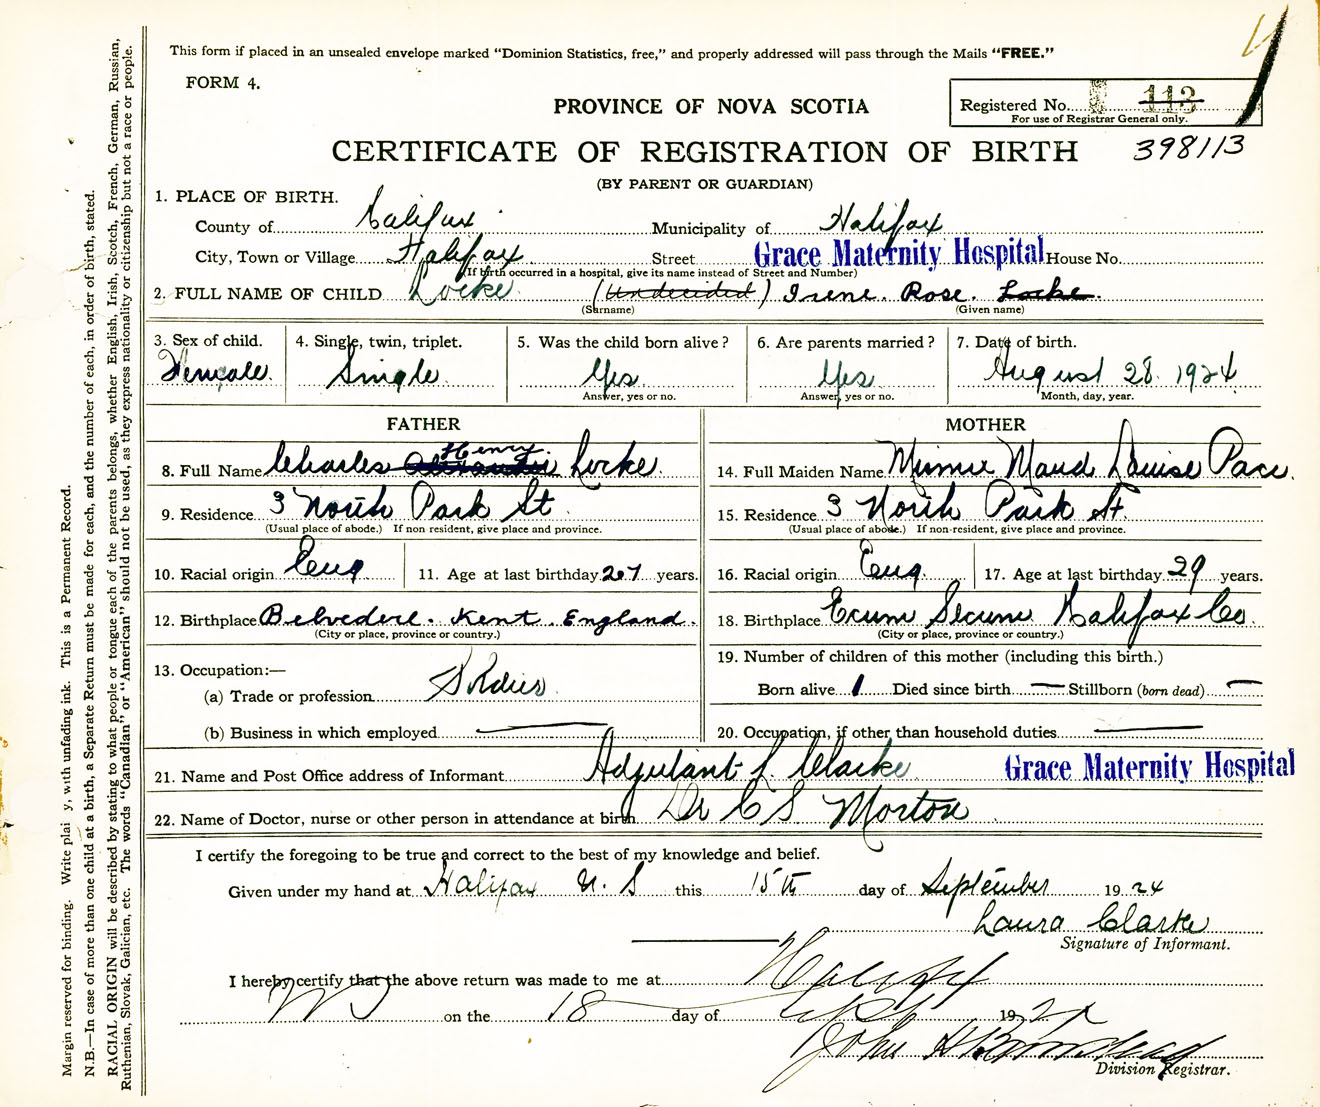 This form if placed in an unsealed envelope marked "Dominion Statistics, free," and properly addressed will pass through the Mails "FREE."
FORM 4.
PROVINCE OF NOVA SCOTIA
Registered No. 113
For use of Registrar General only.
CERTIFICATE OF REGISTRATION OF BIRTH 398113
(BY PARENT OR GUARDIAN)
1. PLACE OF BIRTH.
County of Halifax Municipality of Halifax
City, Town or Village Halifax Street Grace Maternity Hospital House No.
(If birth occurred in a hospital, give its name instead of Street and Number)
2. FULL NAME OF CHILD Locke (Undecided) Irene Rose. Locke.
(Surname) (Given name)
3. Sex of child. 4. Single, twin, triplet. 5. Was the child born alive? 6. Are parents married? 7. Date of birth.
Female. Single Yes Yes August 28. 1924.
Answer, yes or no. Answer, yes or no. Month, day, year.
FATHER MOTHER
Henry
8. Full Name Charles Locke. 14. Full Maiden Name Minnie Maud Louise Pace.
9. Residence 3 North Park St 15. Residence 3 North Park St.
(Usual place of abode.) If non resident, give place and province. (Usual place of abode.) If non-resident, give place and province.
10. Racial origin Eng 11. Age at last birthday 27 years. 16. Racial origin Eng. 17. Age at last birthday 29 years.
12. Birthplace Belvedere. Kent. England. 18. Birthplace Ecum Secum Halifax Co.
(City or place, province or country.) (City or place, province or country.)
13. Occupation:— 19. Number of children of this mother (including this birth.)
(a) Trade or profession Soldier Born alive 1 Died since birth — Stillborn (born dead) —
(b) Business in which employed — 20. Occupation, if other than household duties —
21. Name and Post Office address of Informant Adjutant L. Clarke Grace Maternity Hospital
22. Name of Doctor, nurse or other person in attendance at birth Dr C S Morton
I certify the foregoing to be true and correct to the best of my knowledge and belief.
Given under my hand at Halifax N. S this 15th day of September 1924
Laura Clarke
Signature of Informant.
I hereby certify that the above return was made to me at Halifax
NS on the 18 day of Sept 1924
John H
Division Registrar.
Margin reserved for binding. Write plai y, with unfading ink. This is a Permanent Record.
N.B.—In case of more than one child at a birth, a Separate Return must be made for each, and the number of each, in order of birth, stated.
RACIAL ORIGIN will be described by stating to what people or tongue each of the parents belongs, whether English, Irish, Scotch, French, German, Russian,
Ruthenian, Slovak, Galician, etc. The words "Canadian" or "American" should not be used, as they express nationality or citizenship but not a race or people.